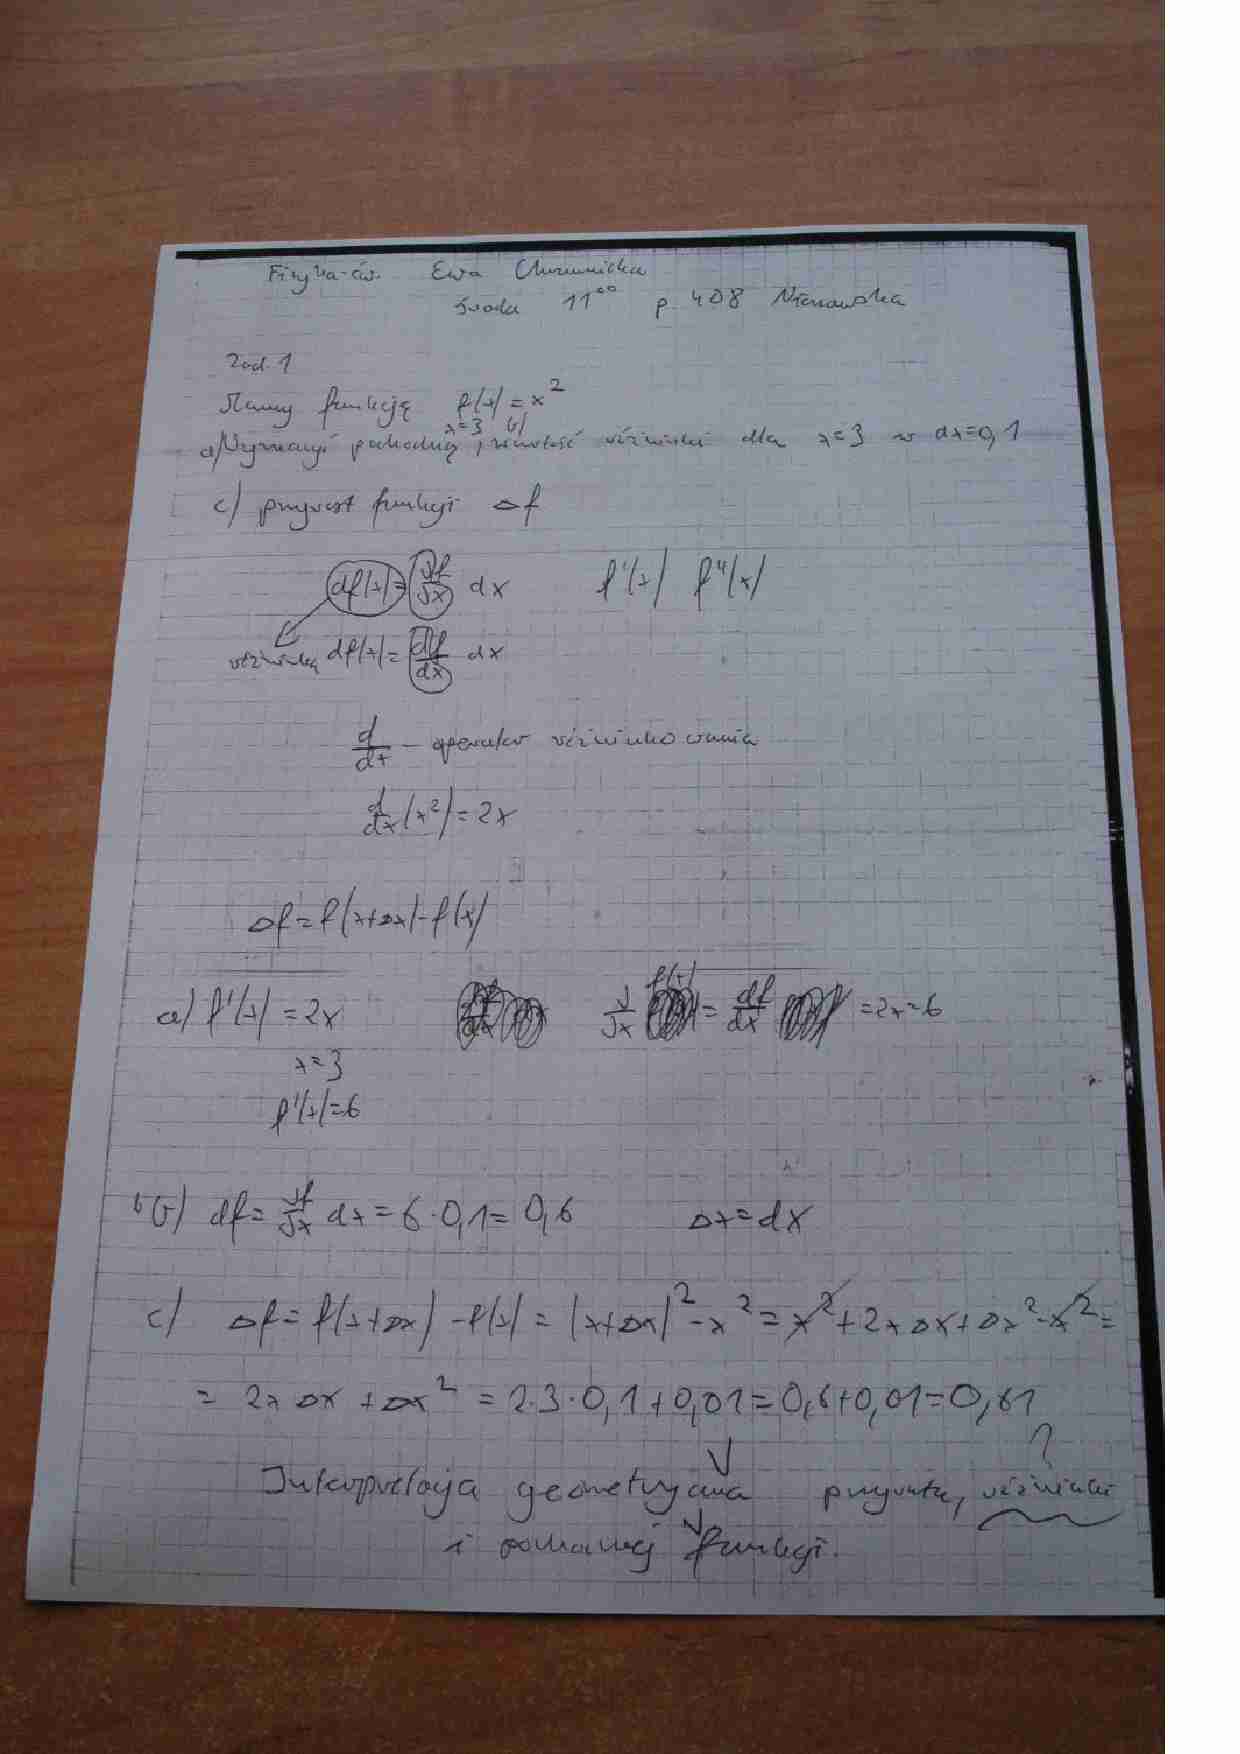 Fizyka-ćw. Ewa
środa 11⁰⁰ p. 408
Zad. 1
Mamy funkcję f(x) = x²
x=3 b)
a) Wyznacz pochodną, wartość różniczki dla x=3 w dx=0,1
c) przyrost funkcji Δf
df(x) = df/dx dx f'(x) f''(x)
różniczka df(x) = df/dx dx
d/dx – operator różniczkowania
d/dx (x²) = 2x
Δf = f(x+Δx) - f(x)
a) f'(x) = 2x d/dx f(x) = df/dx = 2x = 6
x=3
f'(x) = 6
b) df = df/dx dx = 6 · 0,1 = 0,6 Δx = dx
c) Δf = f(x+Δx) - f(x) = (x+Δx)² - x² = x² + 2xΔx + Δx² - x² =
= 2xΔx + Δx² = 2·3·0,1 + 0,01 = 0,6 + 0,01 = 0,61
?
Interpretacja geometryczna przyrostu, różniczki
i pochodnej funkcji.